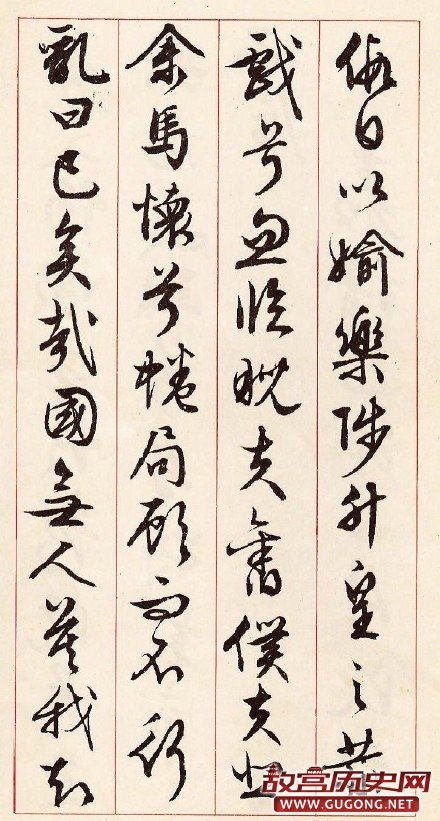 假日以媮樂陟升皇之赫
戲兮忽臨睨夫舊僕夫悲
余馬懷兮蜷局顧而不行
亂曰已矣哉國無人莫我知
故宫历史网
www.GUGONG.net